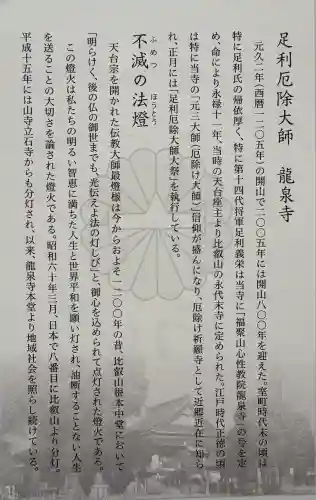 足利厄除大師　龍泉寺
元久二年(西暦一二〇五年)の開山で二〇〇五年には開山八〇〇年を迎えた。室町時代末の頃は
特に足利氏の帰依厚く、特に第十四代将軍足利義栄は当寺に「福聚山心性教院龍泉寺」の号を定
め、命により永禄十一年、当時の天台座主より比叡山の永代末寺に定められた。江戸時代正徳の頃
は特に当寺の「元三大師(厄除け大師)」信仰が盛んになり、厄除け祈願寺として近郷近在に知ら
れ、正月には「足利厄除大師大祭」を執行している。
不滅の法燈
ふめつ　ほうとう
天台宗を開かれた伝教大師最澄様は今からおよそ一二〇〇年の昔、比叡山根本中堂において
「明らけく、後の仏の御世までも、光伝えよ法の灯しび」と、御心を込められて点灯された燈火である。
この燈火は私たちの明るい智恵に満ちた人生と世界平和を願い灯され、油断することない人生
を送ることの大切さを諭された燈火である。昭和六十年三月、日本で八番目に比叡山より分灯。
平成十五年には山寺立石寺からも分灯され、以来、龍泉寺本堂より地域社会を照らし続けている。